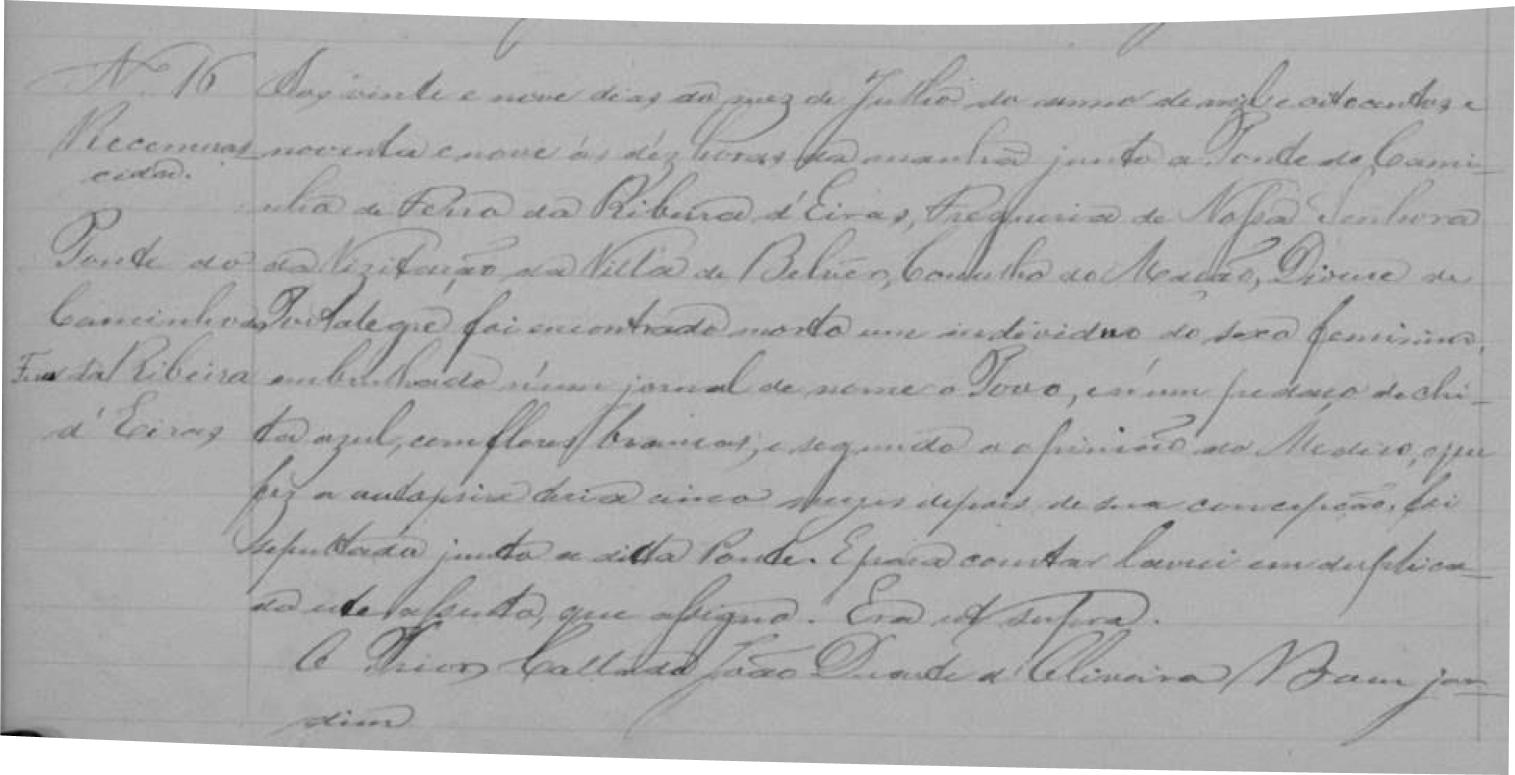 N. 16
Recemnas
cida.
Ponte do
Caminho de
Ferro da Ribeira
d'Eiras
Aos vinte e nove dias do mez de Julho do anno de mil e oitocentos e
noventa e nove ás déz horas da manhã junto a Ponte do Cami-
nho de Ferro da Ribeira d'Eiras, Freguesia de Nossa Senhora
da Vizitação da Villa de Belver, Concelho de Mação, Diocese de
Portalegre foi encontrado morto um individuo do sexo feminino,
embrulhado n'um jornal de nome o Povo, e n'um pedaço de chi-
ta azul, com flores brancas; e segundo a opinião do Medico, que
fez a autopsia teria cinco mezes depois de sua concepção, foi
sepultada junto a ditta Ponte. E para constar lavrei em duplica-
do este assento, que assigno. Era ut supra.
O Prior Collado João Duarte d'Oliveira Bom jar-
dim